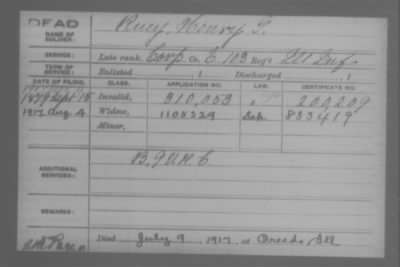 DEAD
NAME OF SOLDIER: Rucy, Henry L.
SERVICE: Late rank, Corp. Co. E, 103 Reg't Ill Inf.
TERM OF SERVICE: Enlisted , 1 Discharged , 1
DATE OF FILING. CLASS. APPLICATION NO. LAW. CERTIFICATE NO.
1879 Sept 15 Invalid, 310,053 200,209
1917 Aug 4 Widow, 1105229 833419
Minor,
ADDITIONAL SERVICES: B. 9 U.R.C.
REMARKS:
Died July 9, 1917 at Breeds, Ill